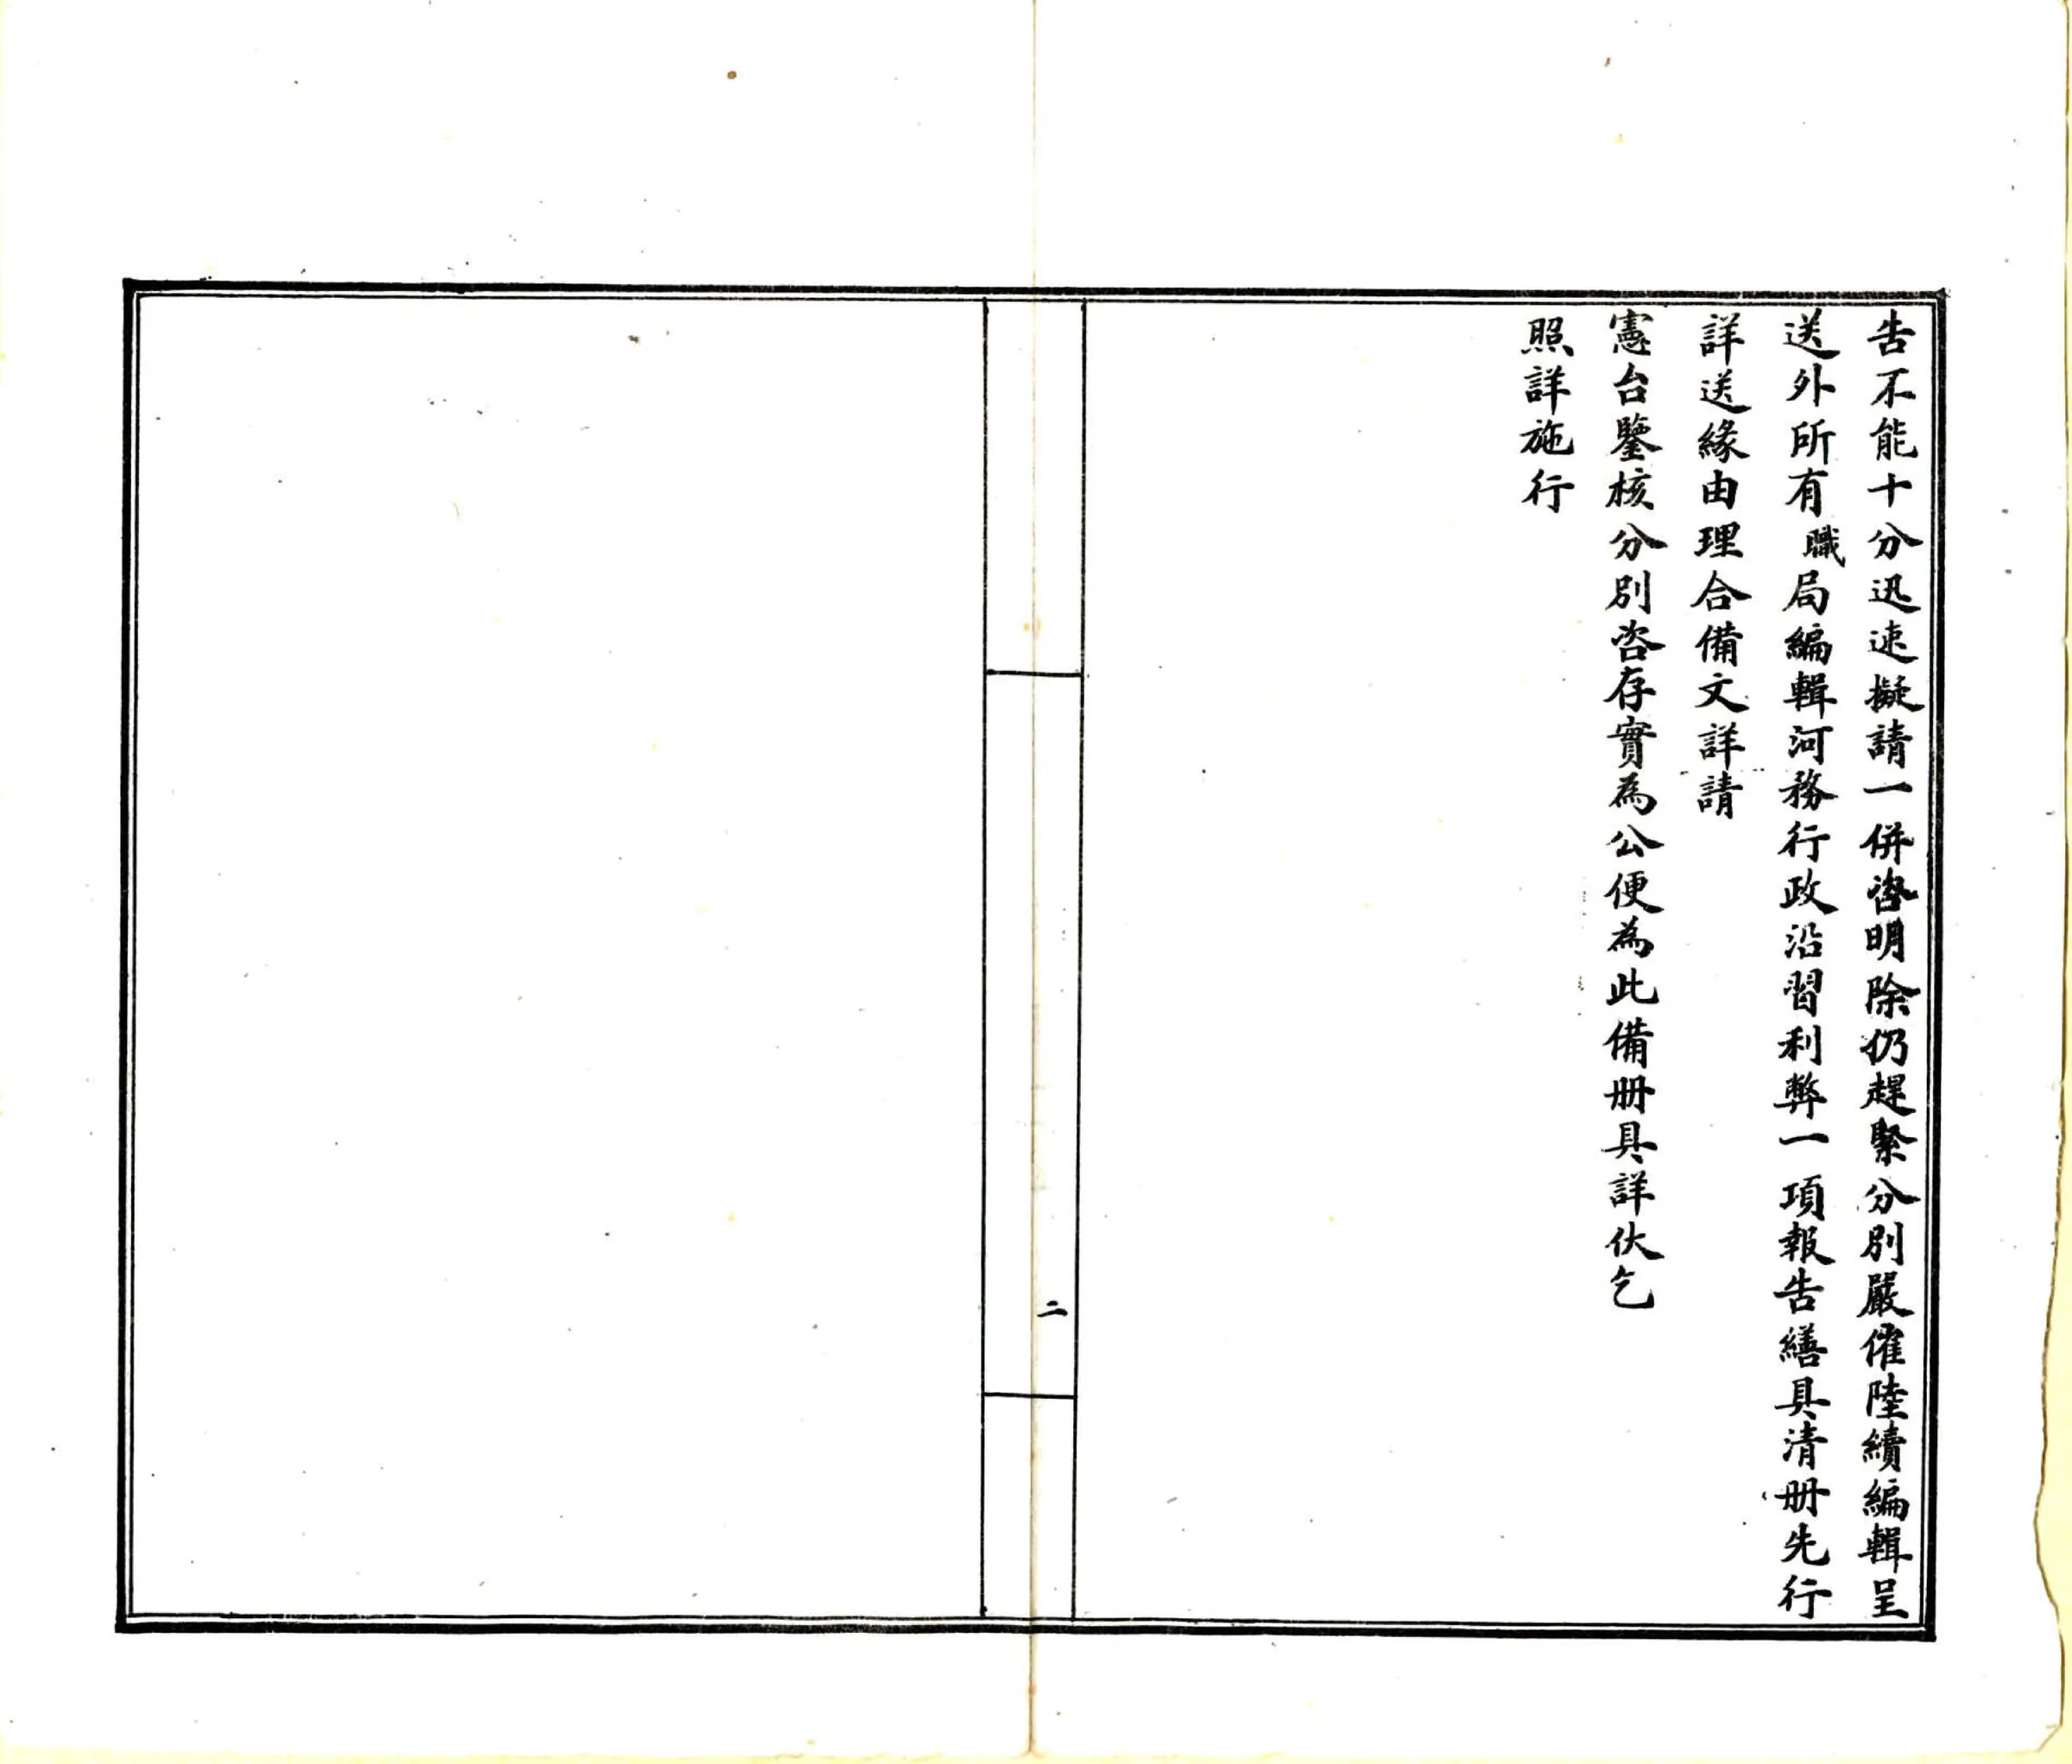 告不能十分迅速擬請一併咨明除仍趕緊分別嚴催陸續編輯呈
送外所有職局編輯河務行政沿習利弊一項報告繕具清册先行
詳送緣由理合備文詳請
憲台鑒核分別咨存實為公便為此備册具詳伏乞
照詳施行
二